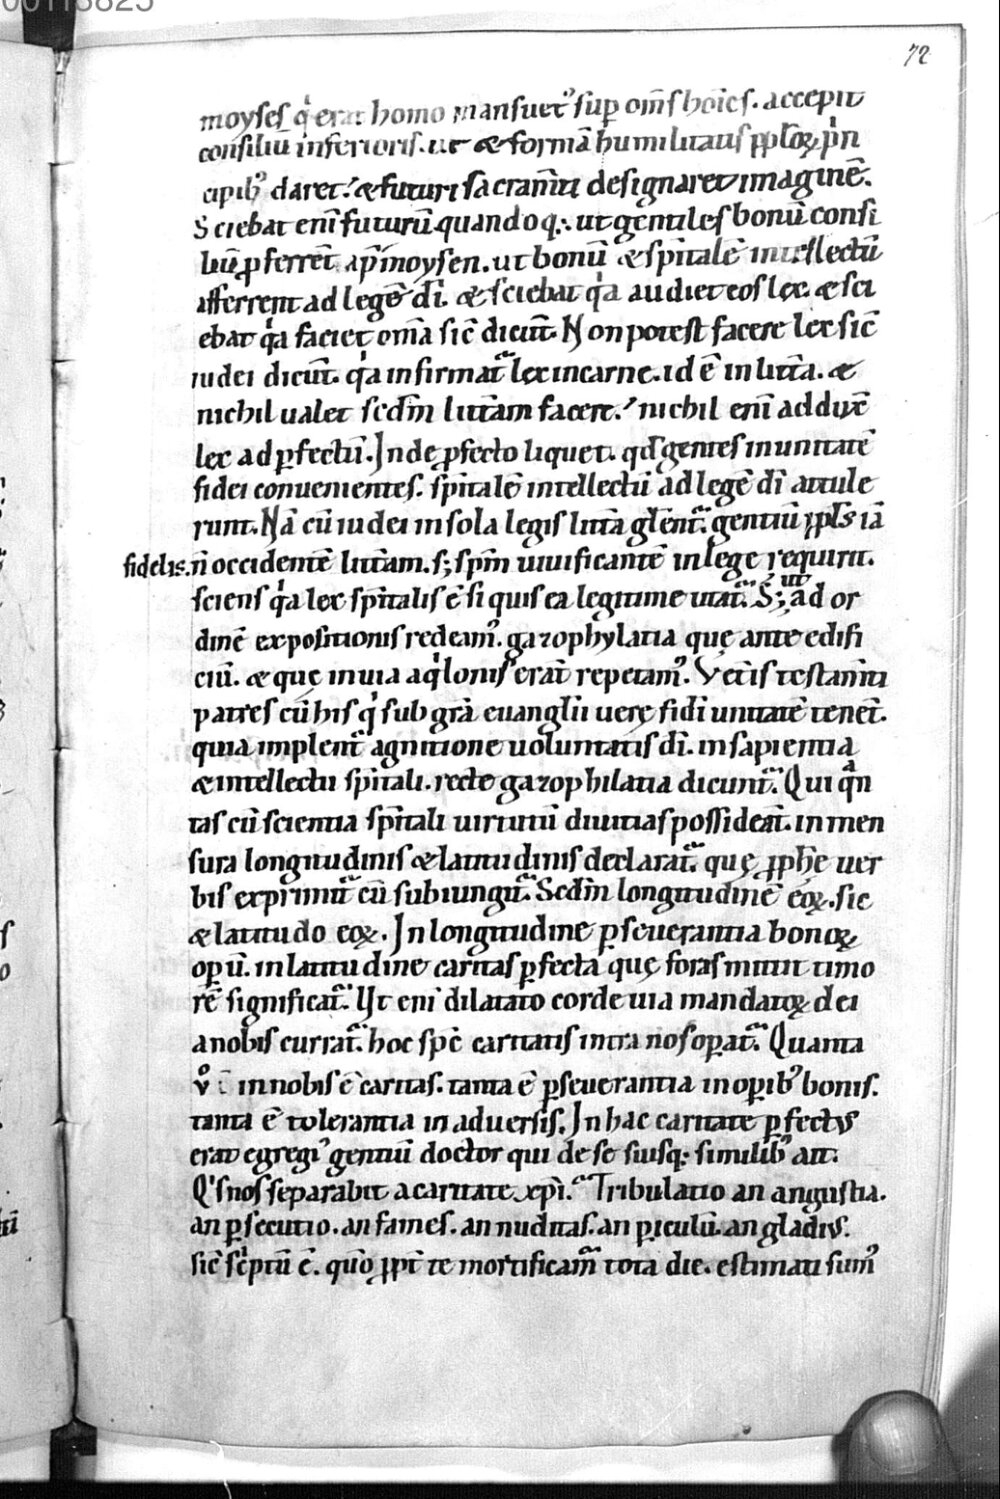 00113825
72
moyses q erat homo mansuet᾿ sup om̄s hoīes. accepit
consiliū inferioris. ut & formā humilitatis pplōꝝ prin
cipib᾿ daret. & futuri sacram̄ti designaret imaginē.
Sciebat enī futurū quandoq;. ut gentiles bonū consi
liū p̱ferrēt ap̄ moysen. ut bonū & sp̄italē intellectū
afferrent ad legē dī. & sciebat qa audiet eos lex. & sci
ebat qa faciet om̄a sic̄ dicūt. Non potest facere lex sic̄
iudei dicūt. qa infirmat᷑ lex in carne. id ē in litt̄a. &
nichil ualet sed̄m litt̄am facere. nichil enī adduxē
lex ad p̱fectū. Inde p̱fecto liquet. qđ gentes in unitatē
fidei conuenientes. sp̄italē intellectū ad legē dī attule
runt. Nā cū iudei in sola legis litt̄a gl̄ent᷑. gentiū ppl̄s iā
fidelis. n̄ occidentē litt̄am. s; sp̄m uiuificantē in lege requirit.
sciens qa lex sp̄italis ē si quis ea legitime utat᷑. S; ut ad or
dinē expositionis redeam᾿. gazophylatia quę ante edifi
ciū. & quę in uia aqlonis erāt repetam᾿. Vet̄is testam̄ti
patres cū his q sub grā euanglii uerę fidi unitatē tenēt.
quia implent᷑ agnitione uoluntatis dī. in sapientia
& intellectu sp̄itali. recte gazophilatia dicunt᷑. Qui qan
tas cū scientia sp̄itali uirtutū diuitias possideāt. in men
sura longitudinis & latitudinis declarat᷑. quę pph̄ę uer
bis exprimit᷑ cū subiungit᷑. Scd̄m longitudinē eoꝝ. sic
& latitudo eoꝝ. In longitudine p̱seuerantia bonoꝝ
op̱ū. in latitudine caritas p̱fecta quę foras mittit timo
rē significat᷑. Ut enī dilatato corde uia mandatoꝝ dei
a nobis currat᷑. hoc sp̄c caritatis intra nos op̱at᷑. Quanta
v̊ in nobis ē caritas. tanta ē p̱seuerantia in op̱ib᾿ bonis.
tanta ē tolerantia in aduersis. In hac caritate p̱fectus
erat egregi᾿ gentiū doctor qui de se suisq; similib᾿ ait.
Qis nos separabit a caritate xp̄i. Tribulatio an angustia.
an p̱secutio. an fames. an nuditas. an p̱iculū. an gladius.
sic̄ sc̄ptū ē. qūo ppt̄ te mortificam᷑ tota die. estimati sum᾿